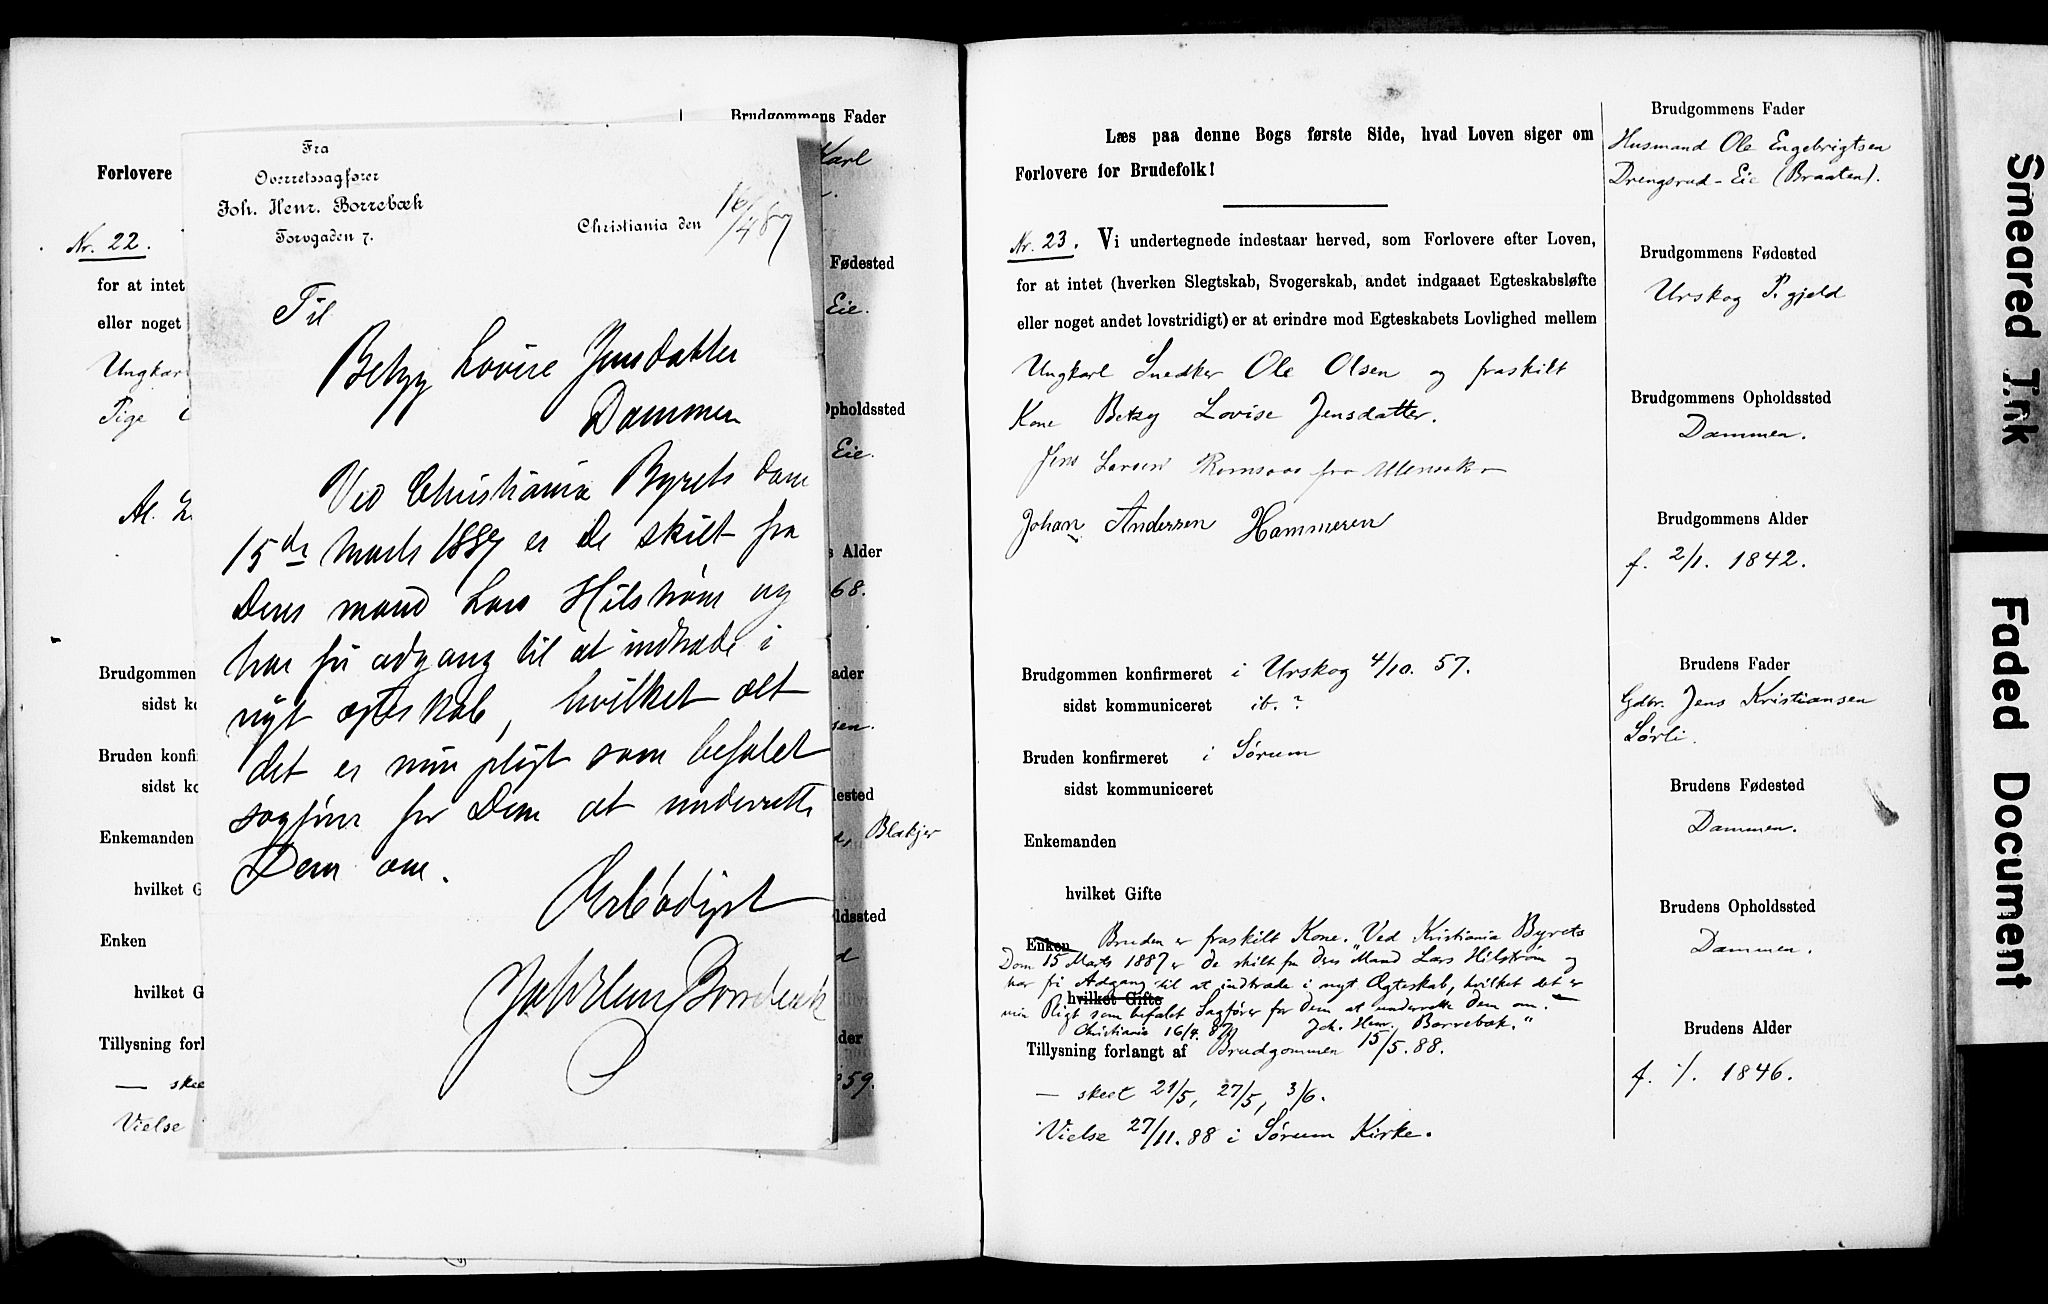 Brudgommens Fader
Karl
Forlovere
Nr. 22.
for at intet
eller noget
Ungkar
Pige
Fødested
Eie.
Opholdssted
Eie.
Alder
68.
Brudgommen
sidst ko
Bruden konfi
sidst ko
Enkemanden
hvilket G
Enken
hvilket G
Tillysning forl
— skee
Vielse
Blakjer
59.
Fra
Overretssagfører
Joh. Henr. Borrebæk
Torvgaden 7.
Christiania den 16/4 87
Til
Betzy Lovise Jensdatter
Dammen
Ved Christiania Byrets Dom
15de Marts 1887 er De skilt fra
Deres mand Lars Hilstrøm og
har fri adgang til at indtræde i
nyt ægteskab, hvilket alt
det er min pligt som befalet
sagfører for Dem at underrette
Dem om.
Ærbødigst
Joh Henr Borrebæk
Læs paa denne Bogs første Side, hvad Loven siger om
Forlovere for Brudefolk!
Nr. 23. Vi undertegnede indestaar herved, som Forlovere efter Loven,
for at intet (hverken Slegtskab, Svogerskab, andet indgaaet Egteskabsløfte
eller noget andet lovstridigt) er at erindre mod Egteskabets Lovlighed mellem
Ungkarl Snedker Ole Olsen og fraskilt
Kone Betzy Lovise Jensdatter.
Jens Larsen Romsaas fra Ullensaker
Johan Andersen Hammeren
Brudgommen konfirmeret i Urskog 4/10. 57.
sidst kommuniceret ib. ?
Bruden konfirmeret i Sørum
sidst kommuniceret
Enkemanden
hvilket Gifte
Enken Bruden er fraskilt Kone. "Ved Kristiania Byrets
Dom 15 Marts 1887 er De skilt fra Deres Mand Lars Hilstrøm og
har fri Adgang til at indtræde i nyt Ægteskab, hvilket det er
hvilket Gifte
min Pligt som befalet Sagfører for Dem at underrette Dem om.
Christiania 16/4. 87 Joh. Henr. Borrebæk."
Tillysning forlangt af Brudgommen 15/5. 88.
— skeet 21/5, 27/5, 3/6.
Vielse 27/11. 88 i Sørum Kirke.
Brudgommens Fader
Husmand Ole Engebrigtsen
Drengsrud-Eie (Braaten).
Brudgommens Fødested
Urskog P.gjeld
Brudgommens Opholdssted
Dammen.
Brudgommens Alder
f. 2/1. 1842.
Brudens Fader
Gdbr. Jens Kristiansen
Sørli.
Brudens Fødested
Dammen.
Brudens Opholdssted
Dammen.
Brudens Alder
f. /. 1846.
Smeared Ink
Faded Document